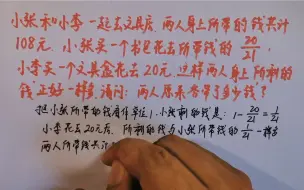 小张和小李一起去文具店,两人身上所带的钱共计
108元,小张买一个书包花去所带钱的20/21,
小李买一个文具盒花去20元,这样两人身上所剩的
钱正好一样多,请问:两人原来各带了多少钱?
把小张所带的钱看作单位1,小张剩的钱是:1-20/21=1/21
小李花去20元后,所剩的钱与小张所带钱的1/21一样多
两人所带钱共计